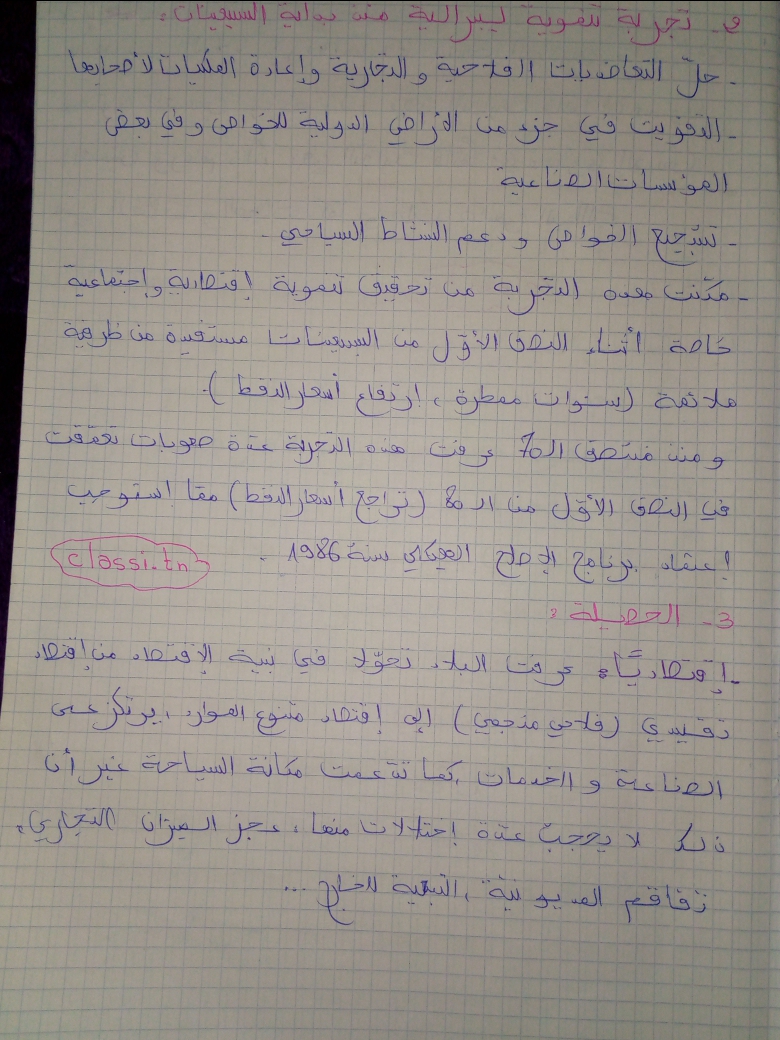 و- تجربة تنموية ليبرالية منذ بداية السبعينات:
- حلّ التعاضديات الفلاحية والتجارية وإعادة الملكيات لأصحابها
- التفويت في جزء من الأراضي الدولية للخواص وفي بعض
المؤسسات الصناعية
- تشجيع الخواص ودعم النشاط السياحي.
- مكّنت هذه التجربة من تحقيق تنموية إقتصادية وإجتماعية
خاصة أثناء النصق الأوّل من السبعينات مستفيدة من ظرفية
ملائمة (سنوات ممطرة، ارتفاع أسعار النفط).
ومنذ منتصق الـ70 عرفت هذه التجربة عدّة صعوبات تعمّقت
في النصق الأوّل من الـ80 (تراجع أسعار النفط) ممّا استوجب
إعتماد برنامج الإصلاح الهيكلي سنة 1986.
classi.tn
3- الحصيلة:
- إقتصاديًّا: عرفت البلاد تحوّلا في بنية الإقتصاد من إقتصاد
تقليدي (فلاحي منجمي) إلى إقتصاد متنوع الموارد، يرتكز على
الصناعة والخدمات، كما تدعمت مكانة السياحة غير أن
ذلك لا يحجب عدّة إختلالات منها: عجز الميزان التجاري،
تفاقم المديونية، التبعية للخارج...